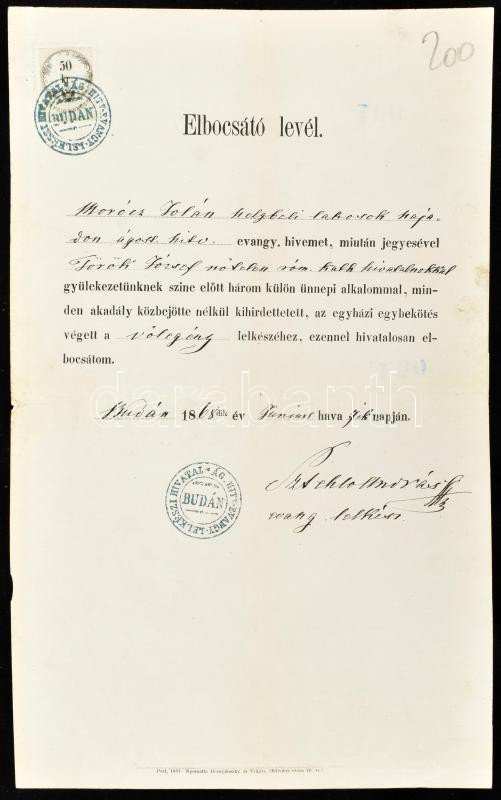 200
50
kr
ÁG. HITV. EVANGY. LELKÉSZI HIVATAL
BUDÁN
Elbocsátó levél.
Morócz Jolán helybeli lakosok haja-
don ágost. hitv. evangy. hivemet, miután jegyesével
Török József nőtelen róm. kath. hivatalnokkal
gyülekezetünknek szine előtt három külön ünnepi alkalommal, min-
den akadály közbejötte nélkül kihirdettetett, az egyházi egybekötés
végett a vőlegény lelkészéhez, ezennel hivatalosan el-
bocsátom.
darabanth
Budán 1868dik év Junius hava 7ik napján.
ÁG. HITV. EVANGY. LELKÉSZI HIVATAL
BUDÁN
András
evang. lelkész.
Pest, 1867. Nyomatta Hornyánszky és